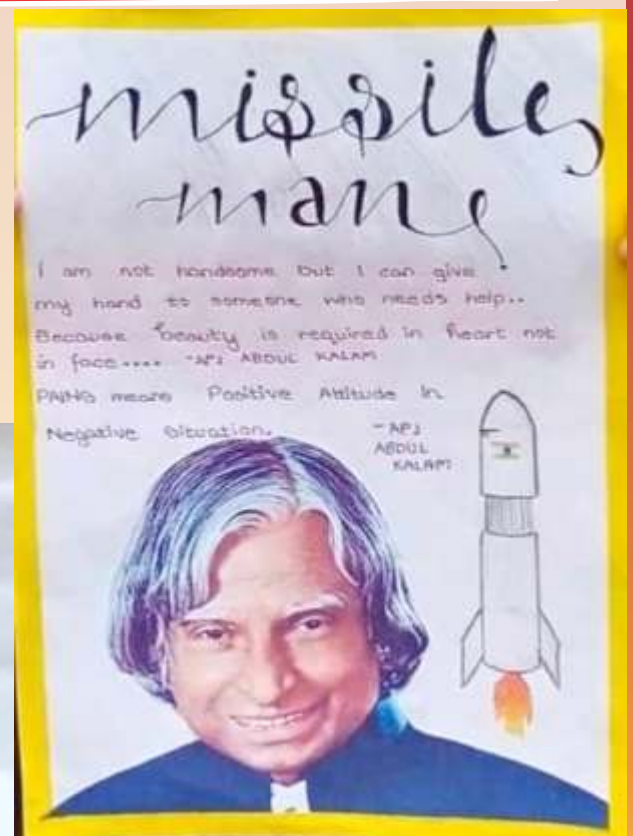 missile
man
I am not handsome but I can give
my hand to someone who needs help..
Because beauty is required in heart not
in face.... -APJ ABDUL KALAM
PAINS means Positive Attitude In
Negative Situation.
- APJ
ABDUL
KALAM